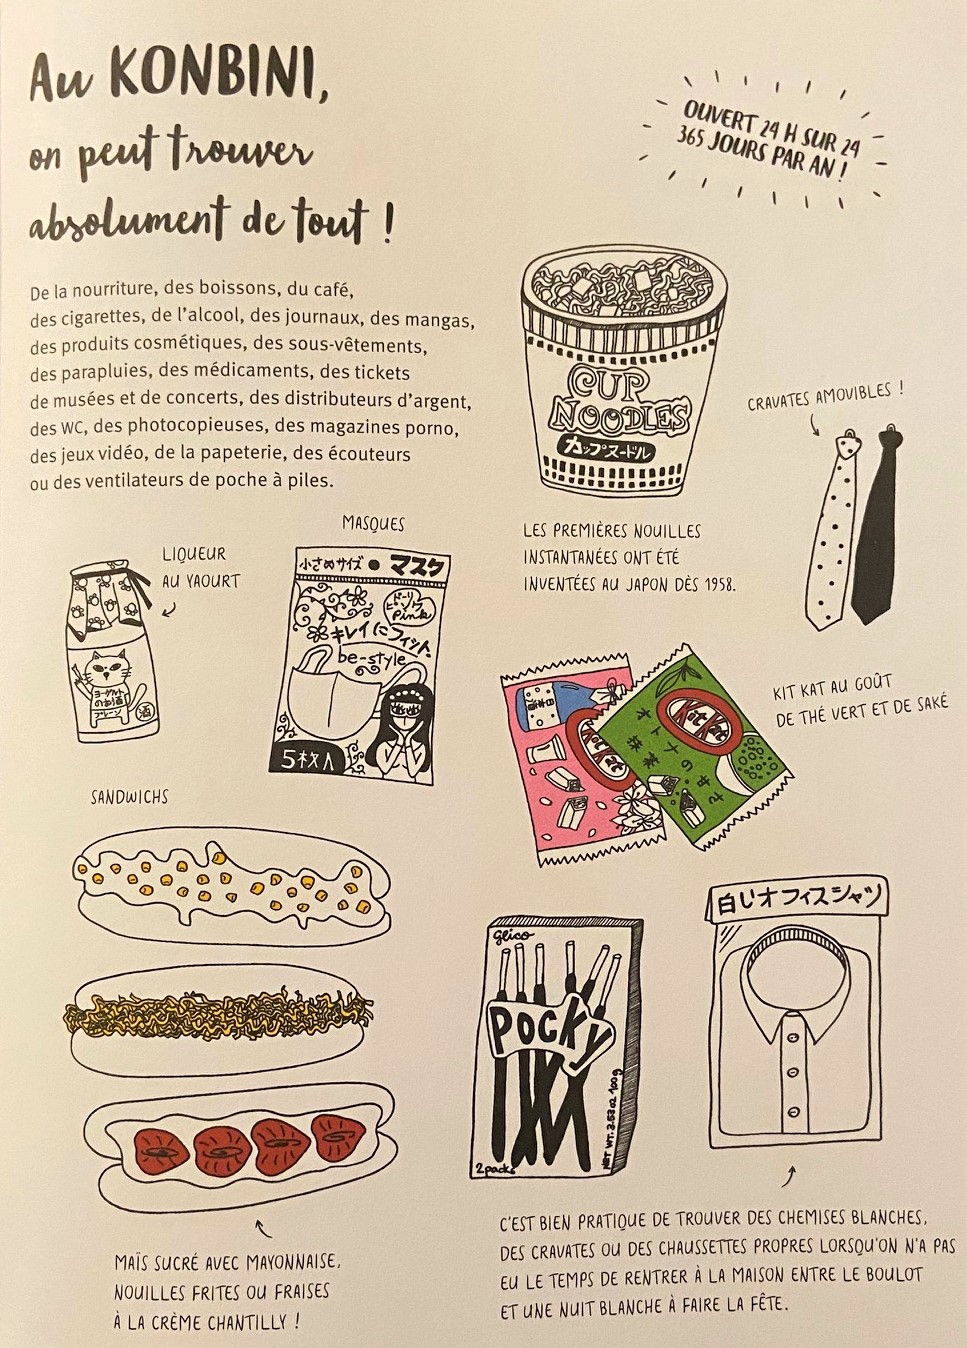 Au KONBINI,
on peut trouver
absolument de tout !
OUVERT 24 H SUR 24
365 JOURS PAR AN !
De la nourriture, des boissons, du café,
des cigarettes, de l'alcool, des journaux, des mangas,
des produits cosmétiques, des sous-vêtements,
des parapluies, des médicaments, des tickets
de musées et de concerts, des distributeurs d'argent,
des WC, des photocopieuses, des magazines porno,
des jeux vidéo, de la papeterie, des écouteurs
ou des ventilateurs de poche à piles.
CUP
NOODLES
カップヌードル
LES PREMIÈRES NOUILLES
INSTANTANÉES ONT ÉTÉ
INVENTÉES AU JAPON DÈS 1958.
CRAVATES AMOVIBLES !
LIQUEUR
AU YAOURT
ヨーグルト
のお酒
プレーン
酒
MASQUES
小さめサイズ マスク
Pink
キレイにフィット
be-style
5枚入
KitKat
KitKat
オトナの甘さ
抹茶
KIT KAT AU GOÛT
DE THÉ VERT ET DE SAKÉ
SANDWICHS
MAÏS SUCRÉ AVEC MAYONNAISE,
NOUILLES FRITES OU FRAISES
À LA CRÈME CHANTILLY !
Glico
POCKY
NET WT. 3.53 oz 100g
2 packs
白いオフィスシャツ
C'EST BIEN PRATIQUE DE TROUVER DES CHEMISES BLANCHES,
DES CRAVATES OU DES CHAUSSETTES PROPRES LORSQU'ON N'A PAS
EU LE TEMPS DE RENTRER À LA MAISON ENTRE LE BOULOT
ET UNE NUIT BLANCHE À FAIRE LA FÊTE.